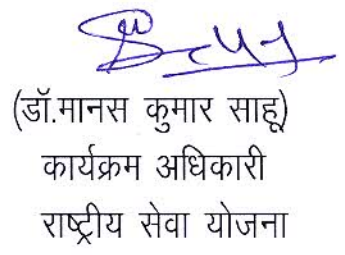 (डॉ.मानस कुमार साहू)
कार्यक्रम अधिकारी
राष्ट्रीय सेवा योजना